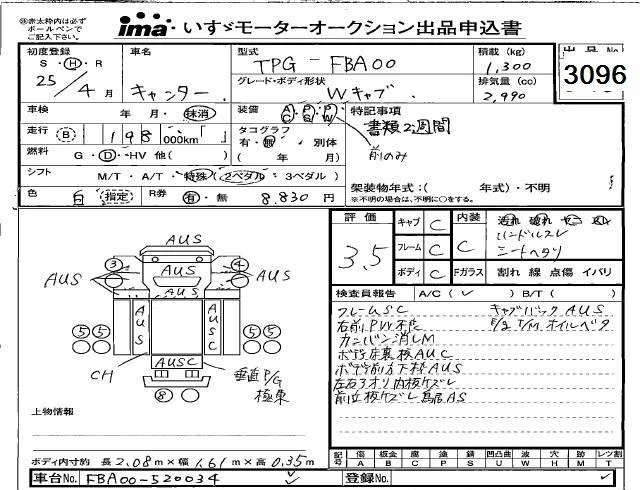 ㊟赤太枠内は必ず
ボールペンで
ご記入下さい。
ima いすゞモーターオークション出品申込書
初度登録 車名 型式 積載 (kg) 出品No.
S・H・R TPG-FBA00 1,300
25/4月 キャンター グレード・ボディ形状 排気量 (cc) 3096
Wキャブ 2,990
車検 年 月・抹消 装備 AC PS PW 特記事項
書類2週間
走行 198,000km タコグラフ
有・無・別体 前のみ
燃料 G・D・HV 他( ) ( 年 月)
シフト M/T・A/T・特殊(2ペダル・3ペダル) 架装物年式:( 年式)・不明
※不明の場合は、不明に○をする。
色 白 指定 R券 有・無 8,830円
評価 3.5 キャブ C 内装 C 汚れ 破れ ヤニ スレ
ハンドルスレ
フレーム C シートヘタリ
ボディ C Fガラス 割れ 線 点傷 イバリ
検査員報告 A/C(✓) B/T( )
フレームSC キャブバックAUS
右前PW不良 T/Mオイルベタ
カンバン消しM
ボデ床裏板AUC
ボデ前方下枠AUS
左右3オリ内板ケズレ
AUS
③ ④
AUS AUS
⑤⑤ AUS AUSC ⑤⑤
CH AUSC 垂直P/G
極東
⑧
上物情報
ボディ内寸約 長2.08m×幅1.61m×高0.35m
記号 傷A 板金B 腐C 塗P 錆S 凹凸曲U 波W 穴H 跡M レンズ割T
車台No. FBA00-520034 登録No.